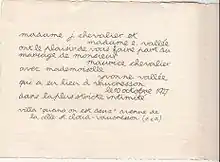 madame j chevalier et
madame e. vallée
ont le plaisir de vous faire part du
mariage de monsieur
maurice chevalier
avec mademoiselle
yvonne vallée
qui a eu lieu à vaucresson
le 10 octobre 1927
dans la plus stricte intimité
villa "quand on est deux" avenue de
la celle st cloud-vaucresson (s&o)